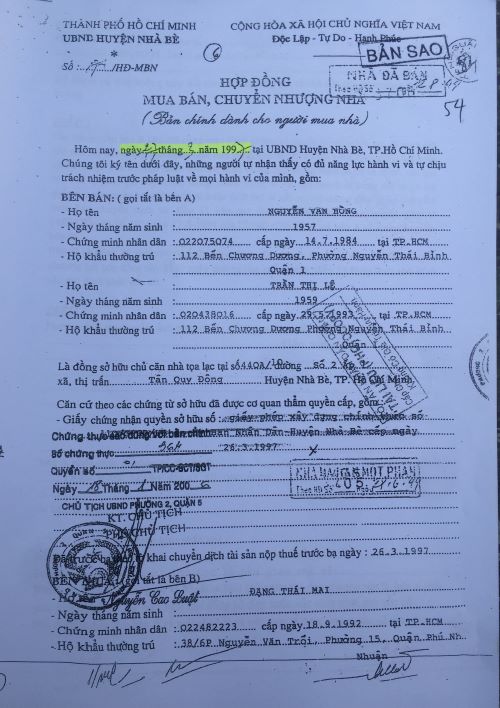 THÀNH PHỐ HỒ CHÍ MINH
UBND HUYỆN NHÀ BÈ
*
Số : /HĐ-MBN
CỘNG HÒA XÃ HỘI CHỦ NGHĨA VIỆT NAM
Độc Lập - Tự Do - Hạnh Phúc
6
BẢN SAO
NHÀ ĐÃ BÁN
54
HỢP ĐỒNG
MUA BÁN, CHUYỂN NHƯỢNG NHÀ
(Bản chính dành cho người mua nhà)
Hôm nay, ngày tháng năm 199 tại UBND Huyện Nhà Bè, TP.Hồ Chí Minh.
Chúng tôi ký tên dưới đây, những người tự nhận thấy có đủ năng lực hành vi và tự chịu
trách nhiệm trước pháp luật về mọi hành vi của mình, gồm:
BÊN BÁN: ( gọi tắt là bên A)
- Họ tên : NGUYỄN VĂN HỒNG
- Ngày tháng năm sinh : 1957
- Chứng minh nhân dân : 022075074 cấp ngày 14.7.1984 tại TP.HCM
- Hộ khẩu thường trú : 112 Bến Chương Dương, Phường Nguyễn Thái Bình
Quận 1
- Họ tên : TRẦN THỊ LỆ
- Ngày tháng năm sinh : 1959
- Chứng minh nhân dân : 020438016 cấp ngày 29.5.1993 tại TP.HCM
- Hộ khẩu thường trú : 112 Bến Chương Dương Phường Nguyễn Thái Bình
Quận 1
Là đồng sở hữu căn nhà tọa lạc tại số 440A/10 đường SỐ 2
xã, thị trấn Tân Quy Đông Huyện Nhà Bè, TP. Hồ Chí Minh
Căn cứ theo các chứng từ sở hữu đã được cơ quan thẩm quyền cấp, gồm :
- Giấy chứng nhận quyền sở hữu số : giấy phép xây dựng chính thức số
Nhân Dân-Huyện Nhà Bè cấp ngày
26.3.1997
Chứng thực sao đúng với bản chính
Số chứng thực
Quyển số TP/CC-SCT/SGT
Ngày 18 Tháng Năm 200
CHỦ TỊCH UBND PHƯỜNG 2, QUẬN 5
KT. CHỦ TỊCH
CHỦ TỊCH
NHÀ BÁN MỘT PHẦN
Đã trước bạ khai chuyển dịch tài sản nộp thuế trước bạ ngày : 26.3.1997
BÊN MUA: (gọi tắt là bên B)
Nguyễn Cao Luật
ĐẶNG THÁI MAI
- Ngày tháng năm sinh :
- Chứng minh nhân dân : 022482223 cấp ngày 18.9.1992 tại TP.HCM
- Hộ khẩu thường trú : 38/6P Nguyễn Văn Trỗi, Phường 15, Quận Phú Nh.
Nhuận